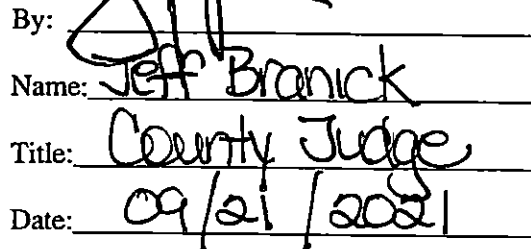 By:
Name: Jeff Branick
Title: County Judge
Date: 09/21/2021